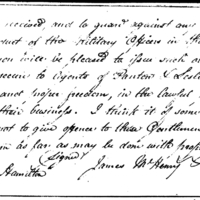 received and to guard against any
of the Military Officers in the
you will be pleased to issue such or
secure to agents of Panton & Lesli
and proper freedom, in the lawful
their business. I think it of some
not to give offence to these Gentlemen
as far as may be done with prop
Signed
James McHenry
Hamilton